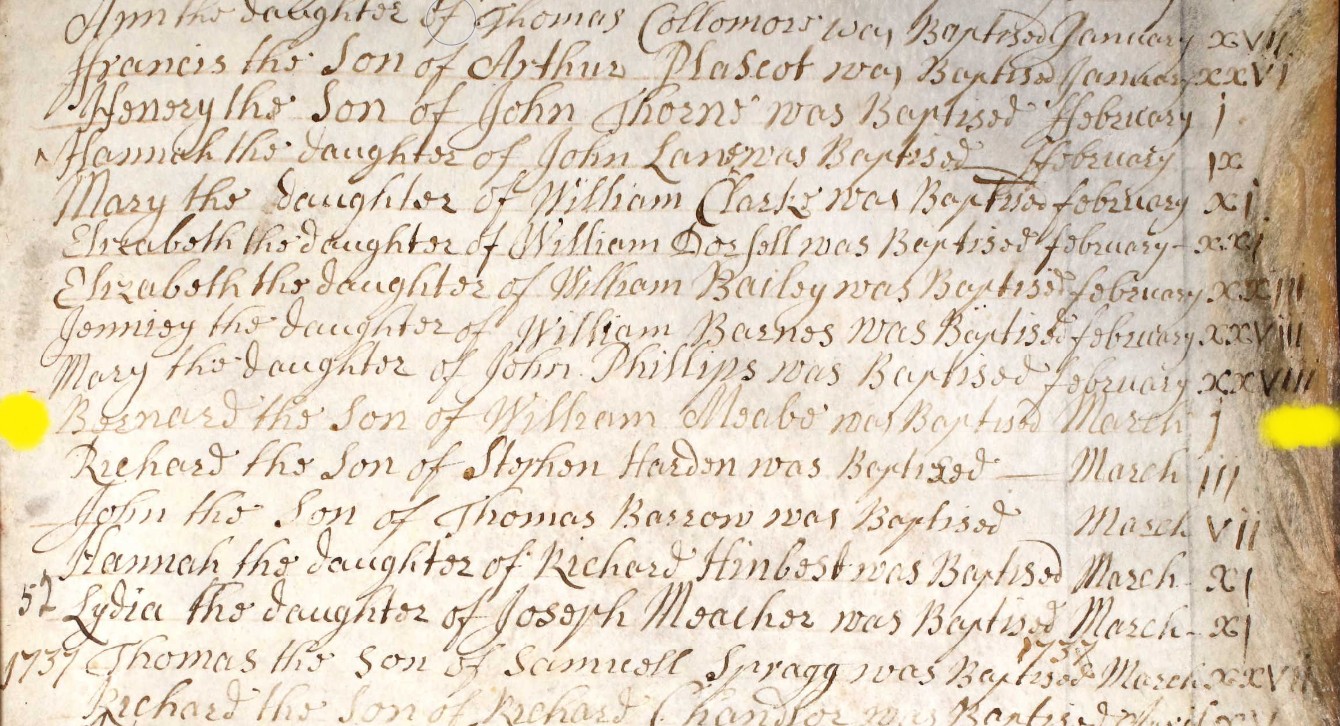 Ann the daughter of Thomas Collomore was Baptised January XVII
ffrancis the Son of Arthur Plascot was Baptised January XXVI
Henery the Son of John Thorne was Baptised ffebruary j
Hannah the daughter of John Lane was Baptised ffebruary IX
Mary the daughter of William Clarke was Baptised february XI
Elizabeth the daughter of William was Baptised february - XXI
Elizabeth the daughter of William Bailey was Baptised february XXIII
Jenniey the daughter of William Barnes was Baptised february XXVIII
Mary the daughter of John Phillips was Baptised february XXVIII
Bernard the Son of William Meabe was Baptised March j
Richard the Son of Stephen Harden was Baptised March III
John the Son of Thomas Barrow was Baptised March VII
Hannah the daughter of Richard Himbest was Baptised March - XI
52 Lydia the daughter of Joseph Meacher was Baptised March - XI
1737
1737 Thomas the Son of Samuell Spragg was Baptised March
Richard the Son of Richard Chandler was Baptised